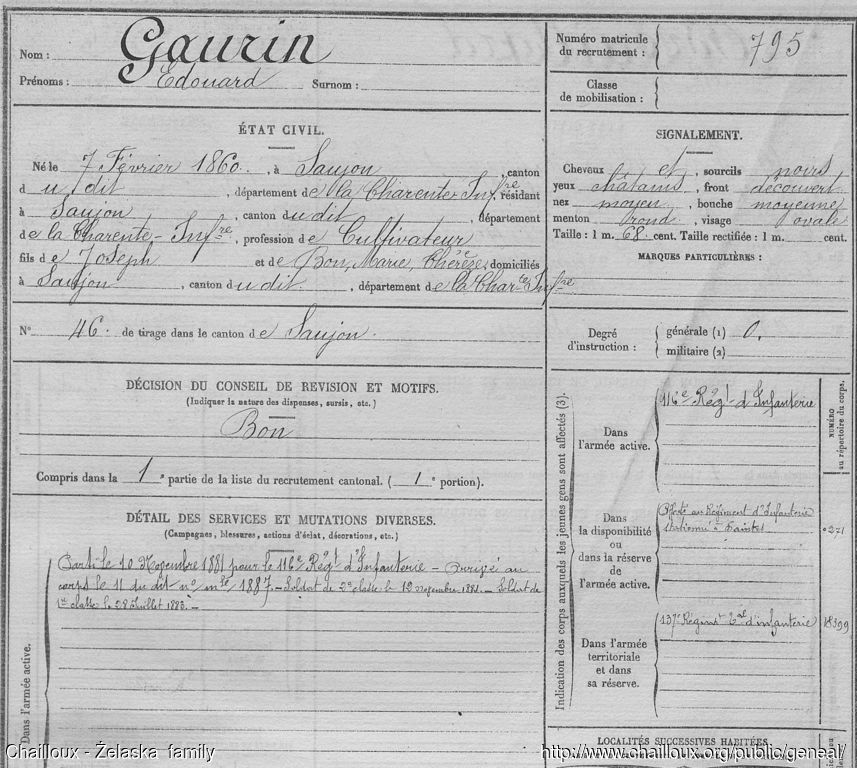 Nom : Gaurin
Prénoms : Edouard Surnom :
Numéro matricule du recrutement : 795
Classe de mobilisation :
ÉTAT CIVIL.
Né le 7 Février 1860. , à Saujon , canton
d u dit , département de la Charente Infre résidant
à Saujon , canton du dit , département
de la Charente-Infre , profession de Cultivateur
fils de Joseph et de Bon, Marie, Chérèse, domiciliés
à Saujon , canton du dit , département de la Charte Infre
N° 46. de tirage dans le canton de Saujon.
DÉCISION DU CONSEIL DE REVISION ET MOTIFS.
(Indiquer la nature des dispenses, sursis, etc.)
Bon
Compris dans la 1e partie de la liste du recrutement cantonal. ( 1e portion).
DÉTAIL DES SERVICES ET MUTATIONS DIVERSES.
(Campagnes, blessures, actions d'éclat, décorations, etc.)
Dans l'armée active.
Parti le 10 Novembre 1881 pour le 116e Régt d'Infanterie – Arrivé au
corps le 11 du dit no mle 1887. – Soldat de 2e classe le 12 novembre 1881. – Soldat de
1re classe le 28 Juillet 1883. –
SIGNALEMENT.
Cheveux et , sourcils noirs
yeux châtains , front découvert
nez moyen , bouche moyenne
menton rond , visage ovale
Taille : 1 m. 68 cent. Taille rectifiée : 1 m. cent.
MARQUES PARTICULIÈRES :
Degré d'instruction : générale (1) 0.
militaire (2)
Indication des corps auxquels les jeunes gens sont affectés (3).
NUMÉRO au répertoire du corps.
Dans l'armée active.
116e Régt d'Infanterie
Dans la disponibilité ou dans la réserve de l'armée active.
au Régiment d'Infanterie
stationné à Saintes
271
Dans l'armée territoriale et dans sa réserve.
137e Régimt Tal d'infanterie
18399
LOCALITÉS SUCCESSIVES HABITÉES
Chailloux - Żelaska family
http://www.chailloux.org/public/geneal/